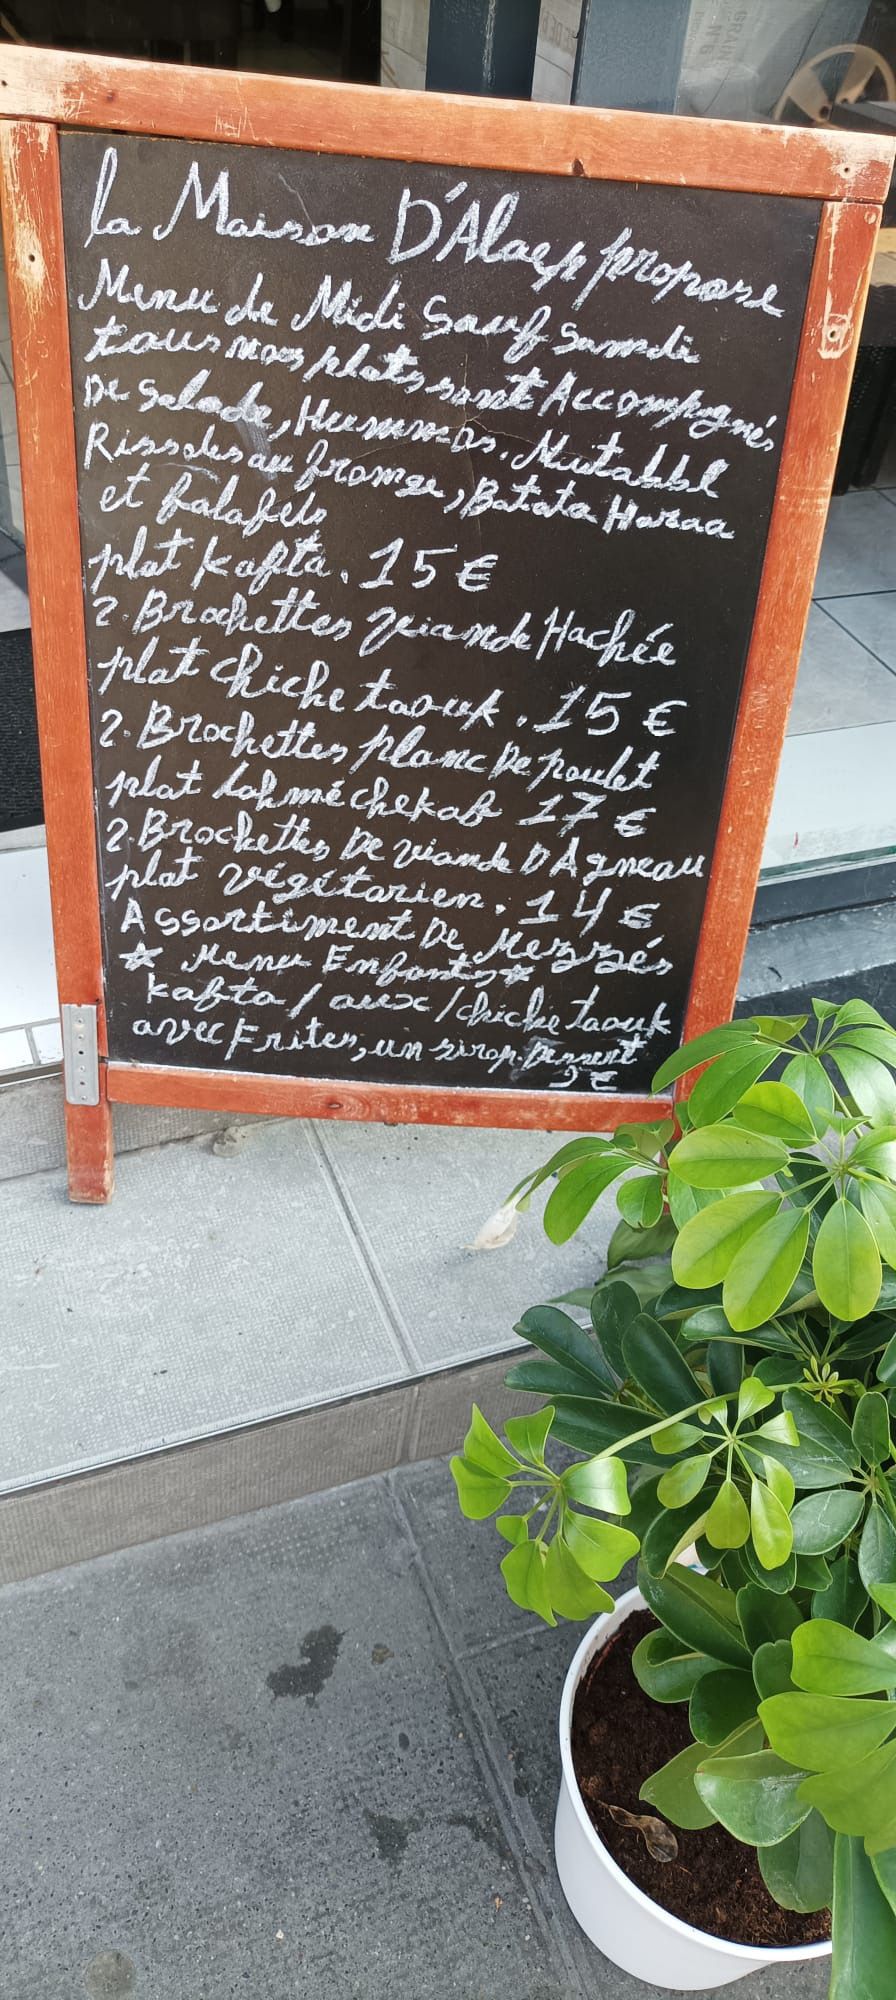 la Maison D'Alaep propose
Menu de Midi Sauf Samdi
tous nos plats sont Accompagnés
De Salade, Hummos. Mutabbl
Rissoles au fromge, Batata Haraa
et falafels
plat kafta. 15 €
2. Brochettes viande Hachée
plat chiche taouk. 15 €
2. Brochettes planc De poulet
plat Lahmé chekab 17 €
2. Brochettes De viande D Agneau
plat végétarien. 14 €
Assortiment De Mezzés
☆ Menu Enfants ☆
kafta / aux / chiche taouk
avec Frites, un sirop. Dessert
9 €